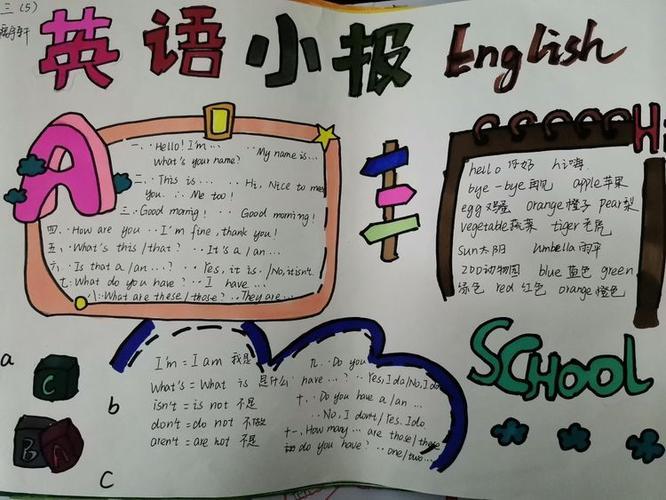 三(5)
英语小报 English
A
一、·Hello! I'm... ··My name is...
What's your name?
二、·This is... ··Hi, Nice to mee
you. ·· Me too!
三·Good mornig! ·· Good morning!
四·How are you ··I'm fine, thank you!
五、·What's this/that? ··It's a/an...
六·Is that a/an...? ··Yes, it is./No, it isn't.
七:What do you have? ··I have...
八:What are these/those? ··They are...
Hi
hello 你好 hi 嗨
bye-bye 再见 apple 苹果
egg 鸡蛋 orange 橙子 pear 梨
vegetable 蔬菜 tiger 老虎
sun 太阳 umbella 雨伞
zoo 动物园 blue 蓝色 green
绿色 red 红色 orange 橙色
I'm = I am 我是
What's = What is 是什么
isn't = is not 不是
don't = do not 不做
aren't = are not 不是
九.·Do you
have...? ··Yes, I do/No, I do
十.·Do you have a/an...
··No, I don't/Yes. I do.
十一.How many... are those/these
do you have? ··one/two...
SCHOOL
a
C
b
B
A
C